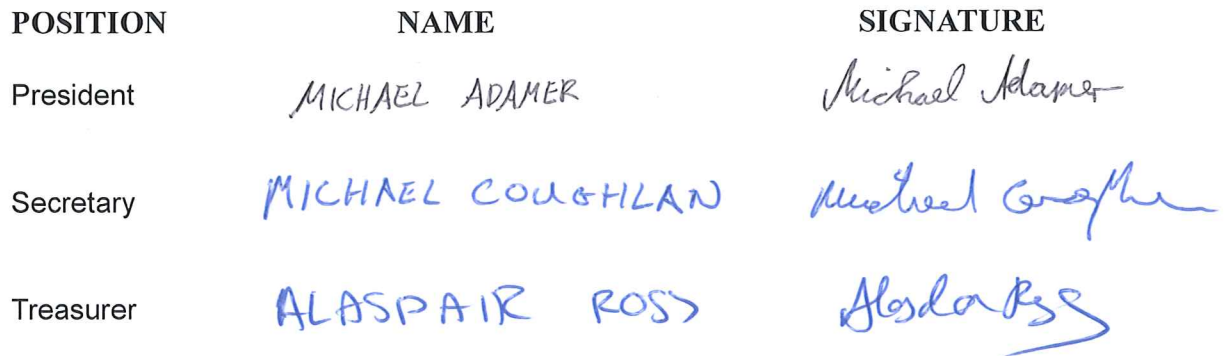 POSITION NAME SIGNATURE
President MICHAEL ADAMER Michael Adamer
Secretary MICHAEL COUGHLAN Michael Coughlan
Treasurer ALASDAIR ROSS